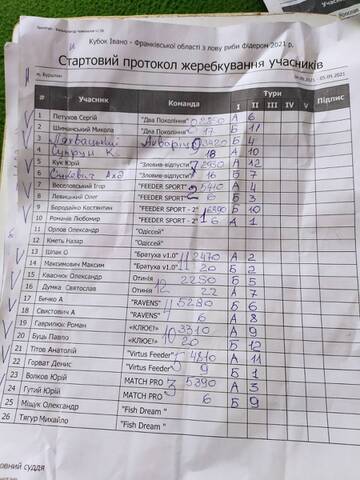 Кубок Івано - Франківської області з лову риби фідером 2021 р.
Стартовий протокол жеребкування учасників
м. Бурштин 04.09.2021 - 05.09.2021
# Учасник Команда Тури Підпис
I II III IV V
1 Петухов Сергій "Два Покоління" 0 2850 А 6
2 Шиманський Микола "Два Покоління" 17 Б 11
3 3420 Б 4
4 К. 18 А 10
5 Кук Юрій "Зловив-відпусти" 7 А 12
6 "Зловив-відпусти" 16 Б 7
7 Веселовський Ігор "FEEDER SPORT" 2 5410 А 4
8 Левицький Олег "FEEDER SPORT" 6 Б 3
9 Бородайко Костянтин "FEEDER SPORT - 2" 1 6390 Б 10
10 Романів Любомир "FEEDER SPORT - 2" 6 А 1
11 Орлов Олександр "Одіссей"
12 Кметь Назар "Одіссей"
13 Шпак О "Братуха v1.0" 11 2470 А 2
14 Максимович Максим "Братуха v1.0" 20 Б 2
15 Кваснюк Олександр Отинія 2250 Б 5
16 Думка Святослав Отинія 12 22 А 7
17 Бичко А "RAVENS" 5280 Б 6
18 Свистович А "RAVENS" 6 А 8
19 Гаврилюк Роман «КЛЮЄ!» 10 3310 А 9
20 Буць Павло «КЛЮЄ!» 20 Б 12
21 Тітов Анатолій "Virtus Feeder" 5 4810 А 11
22 Горват Денис "Virtus Feeder" 9 Б 1
23 Волков Юрій MATCH PRO 3 5390 А 3
24 Гутий Юрій MATCH PRO 6 Б 9
25 Міщук Олександр "Fish Dream "
26 Тягур Михайло "Fish Dream "